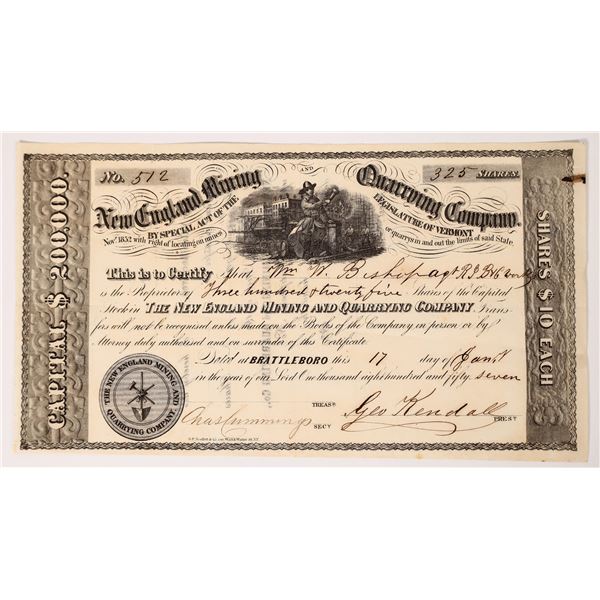 No. 512
325 SHARES.
New England Mining AND Quarrying Company.
BY SPECIAL ACT OF THE LEGISLATURE OF VERMONT
Novr. 1852 with right of locating on mines or quarrys in and out the limits of said State.
This is to Certify that Wm W. Bishop agt
is the Proprietor of Three hundred & twenty five Shares of the Capital
Stock in THE NEW ENGLAND MINING AND QUARRYING COMPANY. Trans-
fers will not be recognised unless made on the Books of the Company in person or by
Attorney duly authorised and on surrender of this Certificate.
Dated at BRATTLEBORO this 17 day of Jany
in the year of our Lord One thousand eight hundred and fifty. seven
TREASR
Chas Cummings SECY
Geo Kendall PREST
CAPITAL $200,000.
SHARES $10 EACH
THE NEW ENGLAND MINING AND QUARRYING COMPANY.